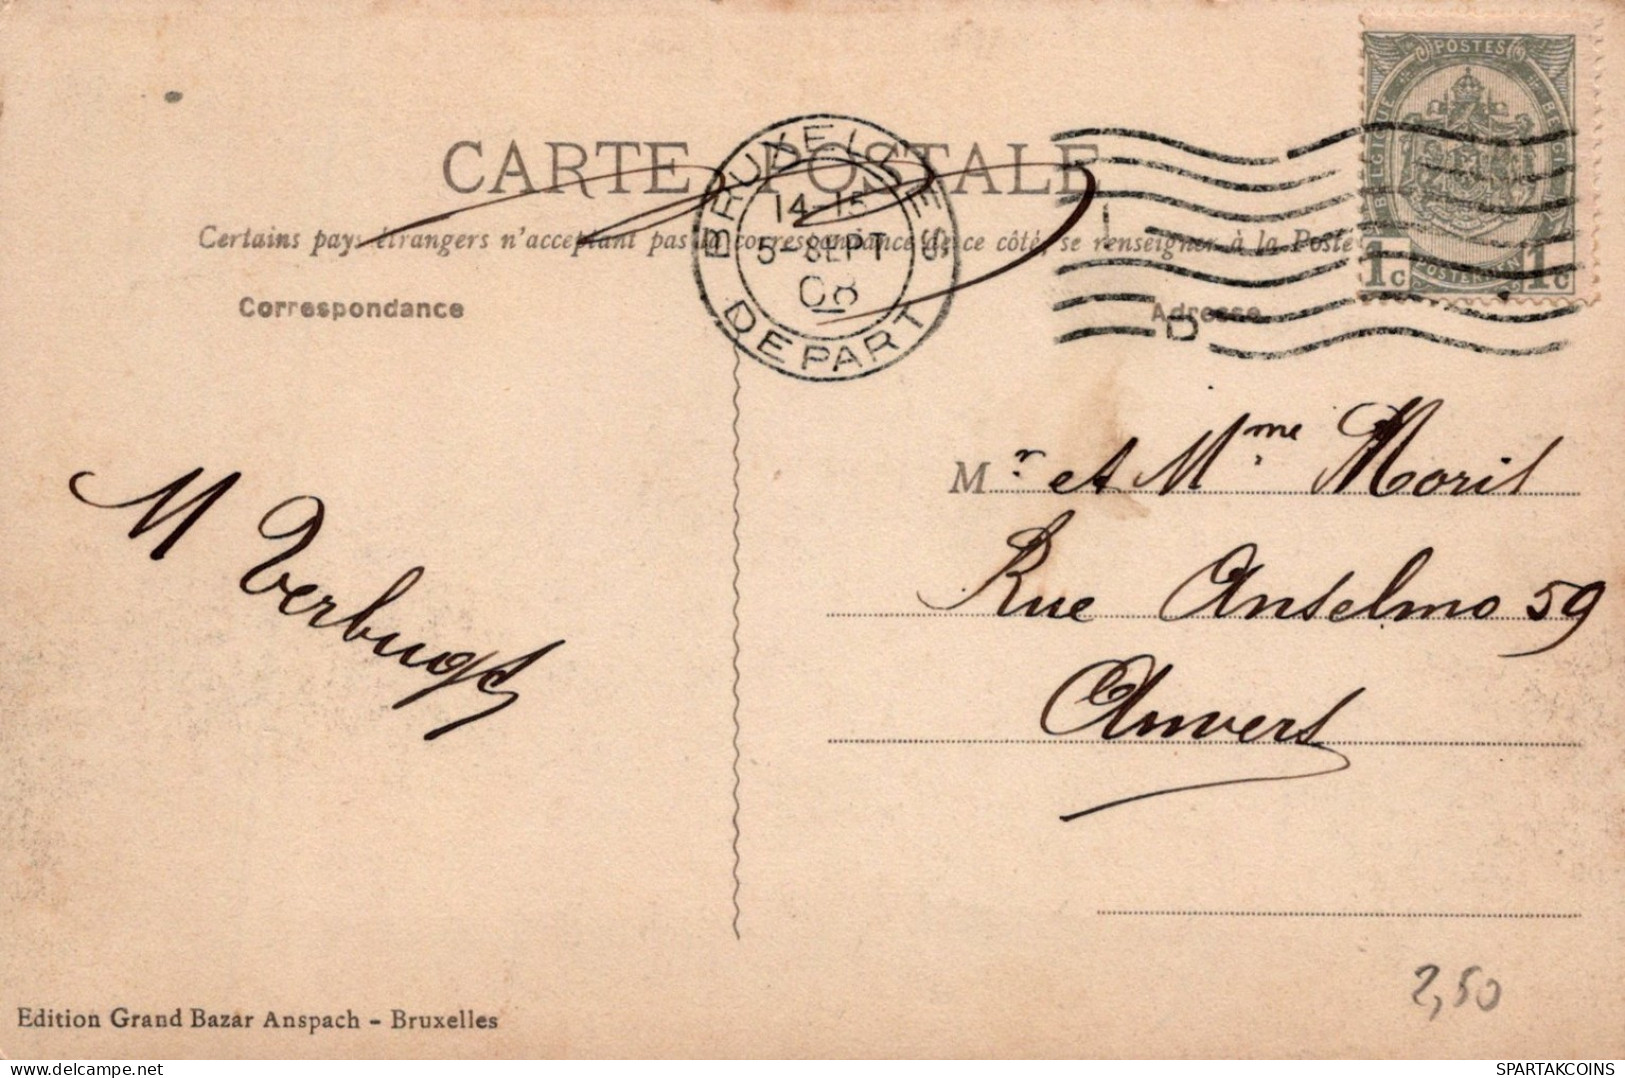 POSTES
BELGIQUE
1c POSTERIJEN 1c
CARTE POSTALE
BRUXELLES
14-15
5-SEPT
08
DEPART
Certains pays étrangers n'acceptant pas la correspondance de ce côté, se renseigner à la Poste
Correspondance
Adresse
Mr. et Mme. Moris
M Verbugt
Rue Anselmo 59
Anvers
2,50
Edition Grand Bazar Anspach - Bruxelles
SPARTAKCOINS
delcampe.net